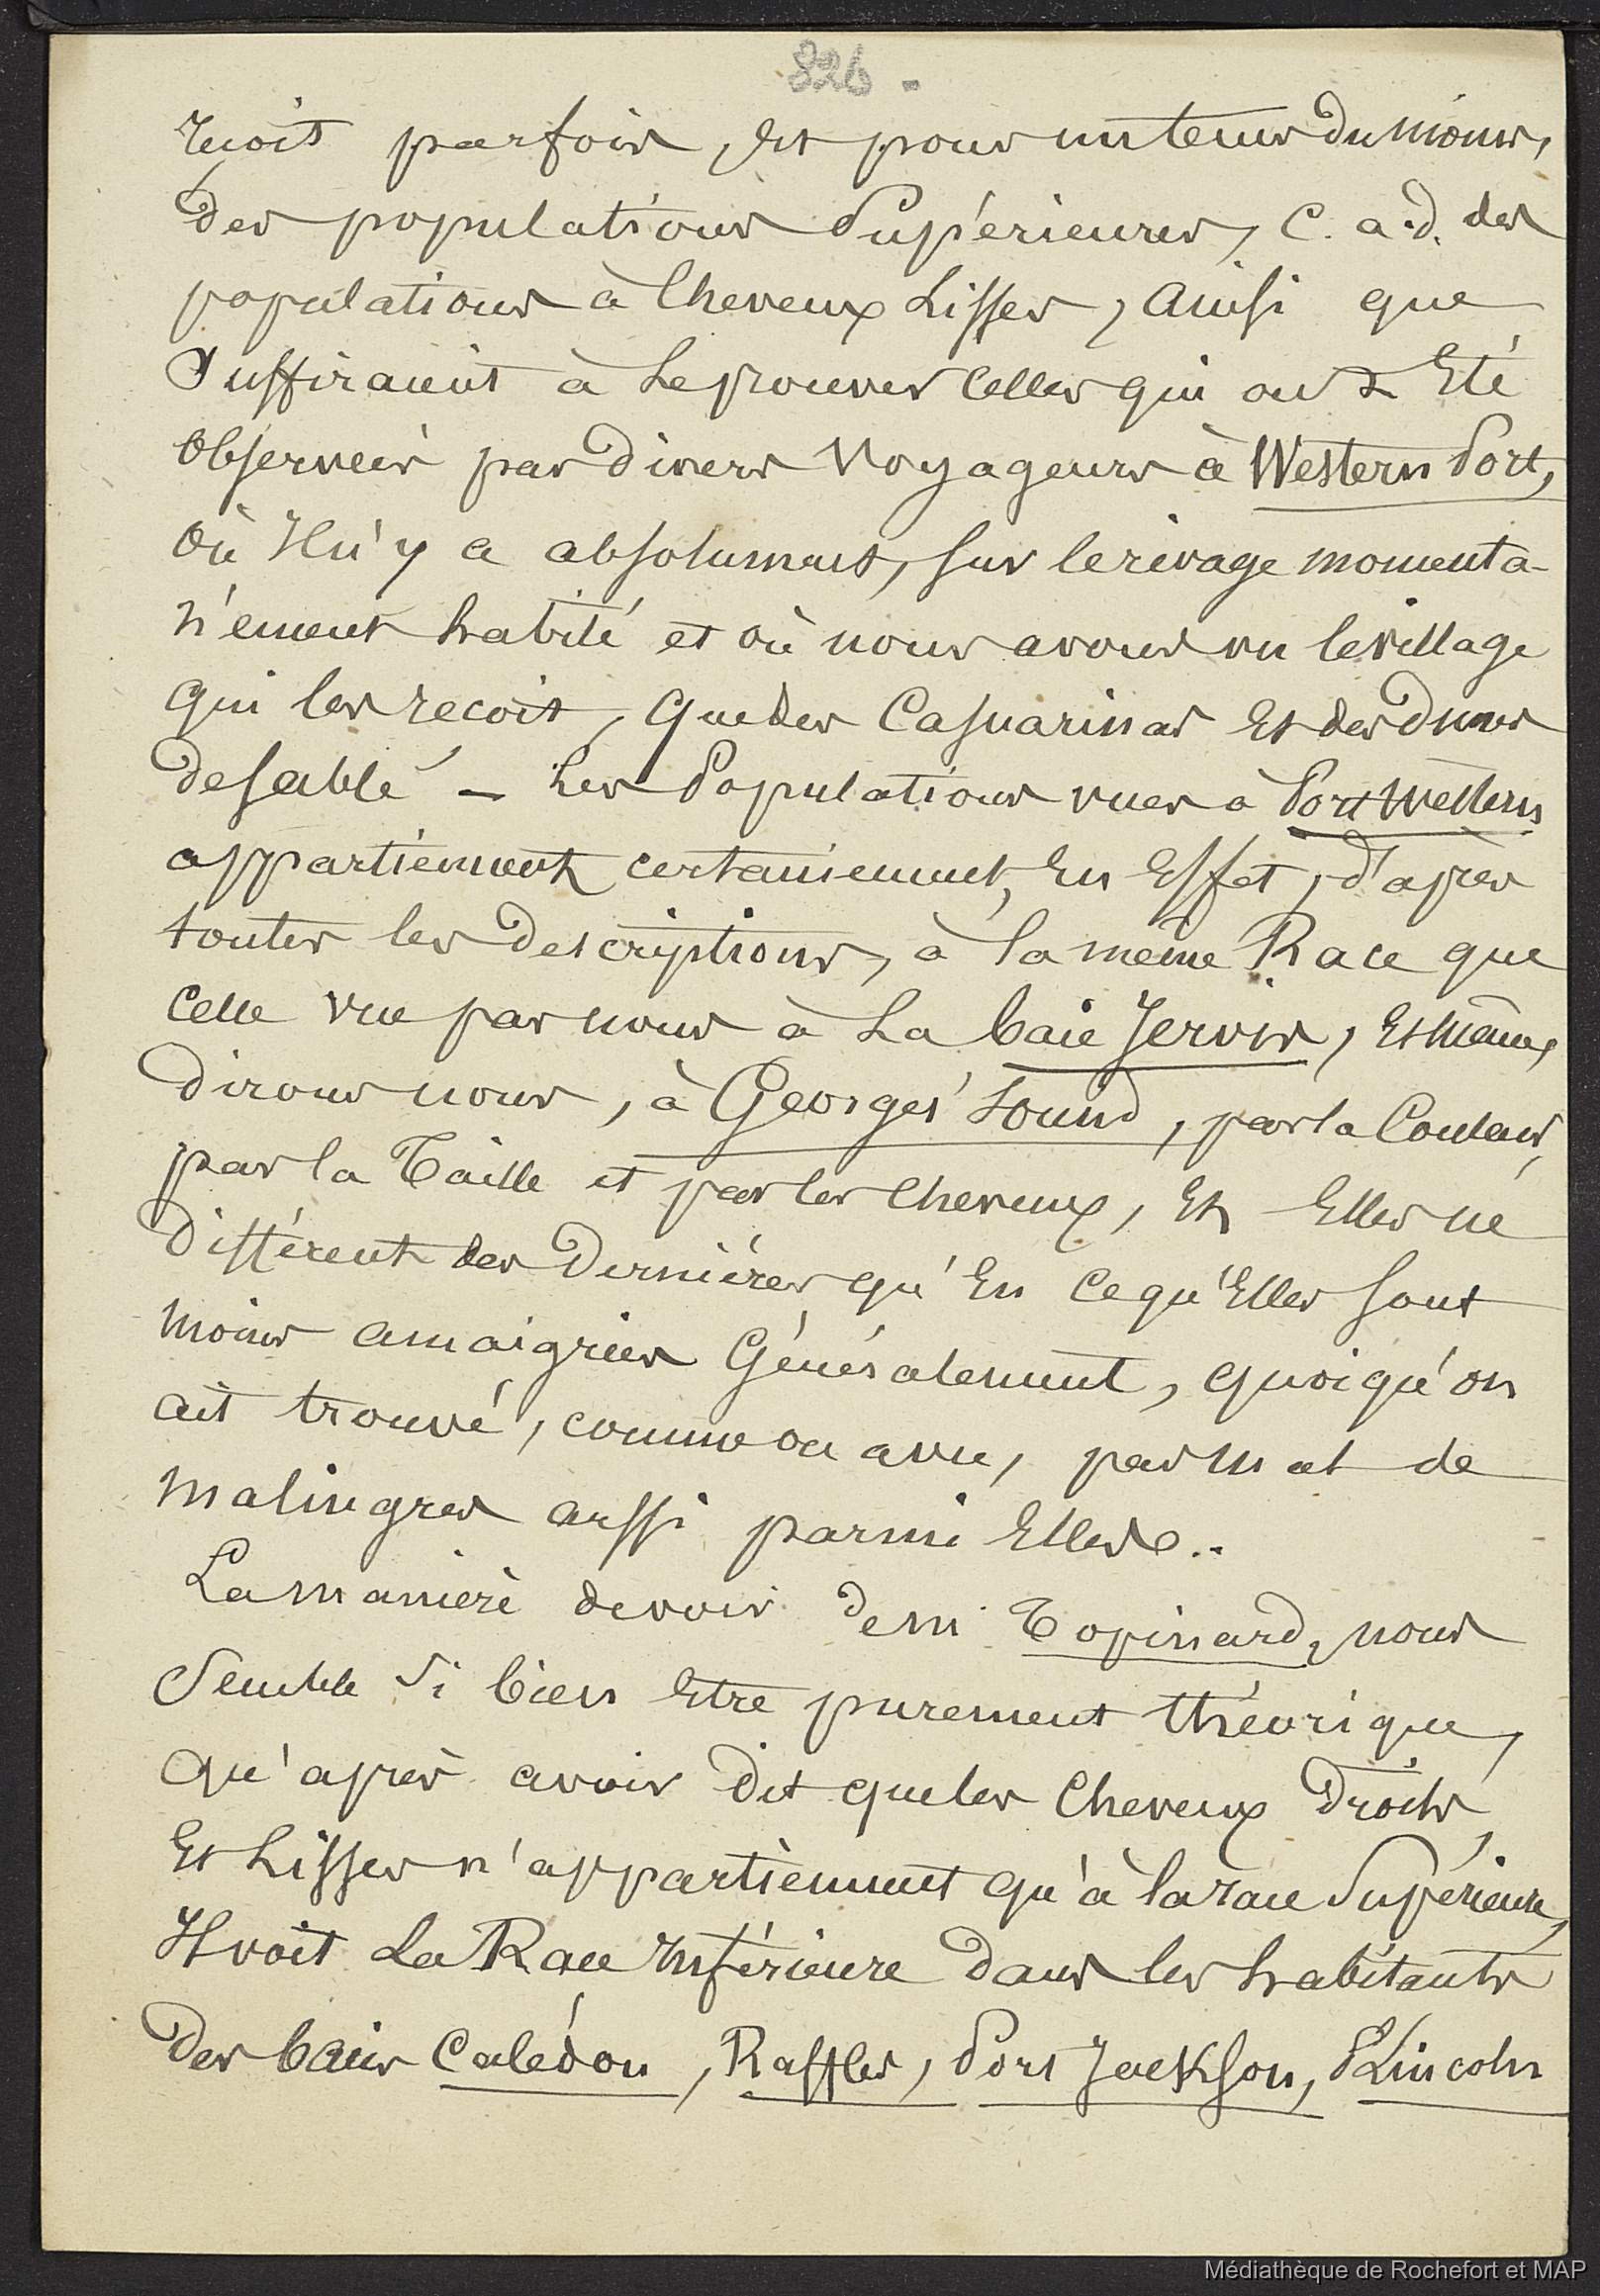 826 -
reçoit parfois, et pour un tems du moins,
des populations Supérieures, C. a. d. des
populations à Cheveux Lisses, Ainsi que
Suffiraient à Le prouver Celles qui ont Eté
Observées par divers Voyageurs à Western Port,
Où Il n'y a absolument, sur le rivage momenta-
nément habité et où nous avons vu le village
qui les reçoit, que des Casuarinas Et des Dunes
de sable — Les Populations vues à Port Western
appartiennent certainement, En Effet, d'après
toutes les Descriptions, à la même Race que
Celle vue par nous à La baie Jervis, Et même,
dirons nous, à Georges' Sound, par la Couleur,
par la Taille et par les Cheveux, Et Elles ne
diffèrent des Dernières qu'En Ce qu'Elles sont
moins amaigries Généralement, quoiqu'on
ait trouvé, comme on a vu, pas mal de
malingres aussi parmi Elles..
La manière de voir de M. Topinard, nous
Semble Si bien Etre purement théorique,
qu'après avoir Dit que les Cheveux Droits,
Et Lisses n'appartiennent qu'à la race Supérieure,
Il voit La Race Inférieure dans les habitants
Des baies Calédon, Raffles, Port Jackson, P. Lincoln
Médiathèque de Rochefort et MAP